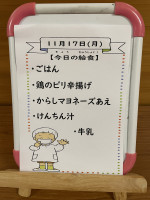 11月17日(月)
【今日の給食】
・ごはん
・鶏のピリ辛揚げ
・からしマヨネーズあえ
・けんちん汁
・牛乳